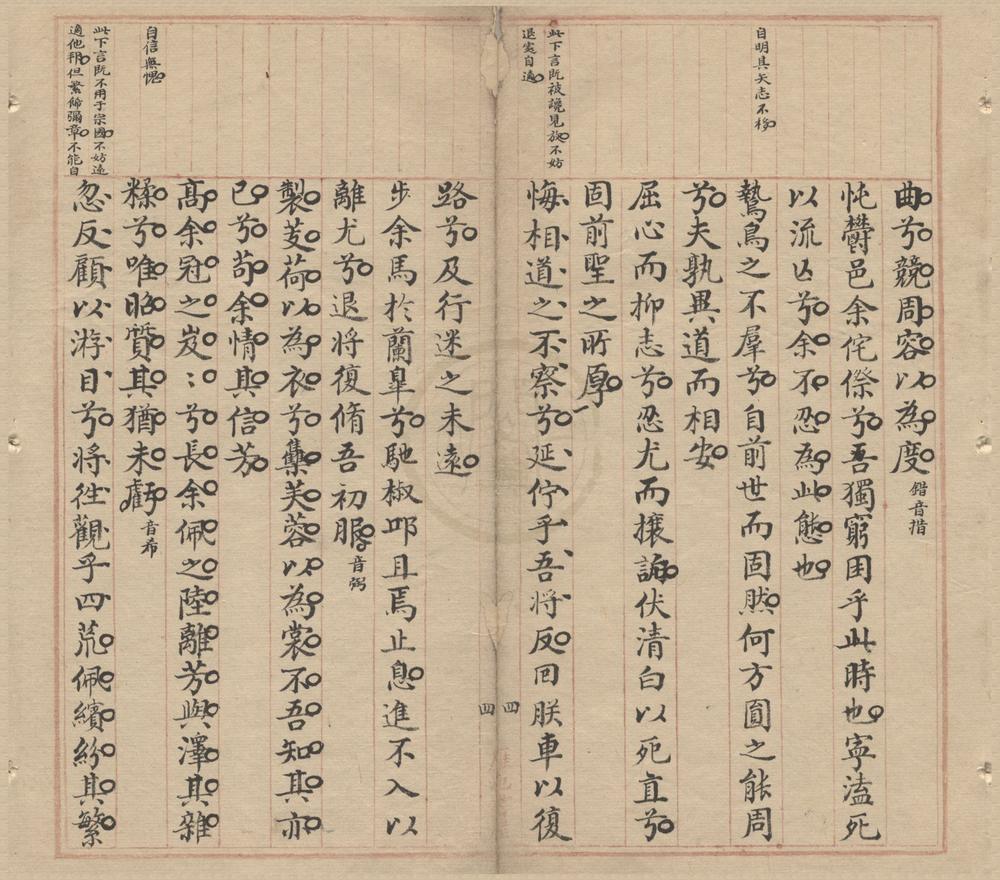 自明其矢志不移
此下言既被讒見放不妨
退處自適
曲兮競周容以為度錯音措
忳鬱邑余侘傺兮吾獨窮困乎此時也寧溘死
以流亾兮余不忍為此態也
鷙鳥之不羣兮自前世而固然何方圓之能周
兮夫孰異道而相安
屈心而抑志兮忍尤而攘詬伏清白以死直兮
固前聖之所厚
悔相道之不察兮延佇乎吾將反回朕車以復
四
四
自信無愧
此下言既不用于宗國不妨遠
適他邦但繁飾彌章不能自
路兮及行迷之未遠
步余馬於蘭臯兮馳椒邱且焉止息進不入以
離尤兮退將復脩吾初服音弼
製芰荷以為衣兮集芙蓉以為裳不吾知其亦
已兮苟余情其信芳
高余冠之岌:兮長余佩之陸離芳與澤其雜
糅兮唯昭質其猶未虧音希
忽反顧以游目兮將徃觀乎四荒佩繽紛其繁